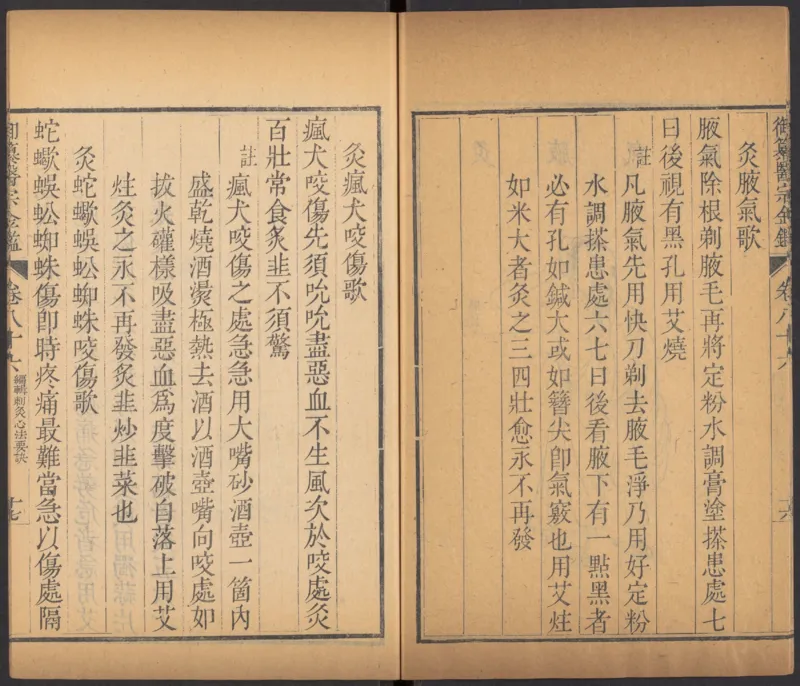 御纂醫宗金鑑
卷八十六
十六
灸腋氣歌
腋氣除根剃腋毛再將定粉水調膏塗搽患處七
日後視有黑孔用艾燒
註凡腋氣先用快刀剃去腋毛淨乃用好定粉
水調搽患處六七日後看腋下有一點黑者
必有孔如鍼大或如簪尖卽氣竅也用艾炷
如米大者灸之三四壯愈永不再發
灸瘋犬咬傷歌
瘋犬咬傷先須吮吮盡惡血不生風次於咬處灸
百壯常食炙韭不須驚
註瘋犬咬傷之處急急用大嘴砂酒壺一箇內
盛乾燒酒燙極熱去酒以酒壺嘴向咬處如
拔火礶樣吸盡惡血爲度擊破自落上用艾
炷灸之永不再發炙韭炒韭菜也
灸蛇蠍蜈蚣蜘蛛咬傷歌
蛇蠍蜈蚣蜘蛛傷卽時疼痛最難當急以傷處隔
御纂醫宗金鑑
卷八十六
編輯刺灸心法要訣
十七